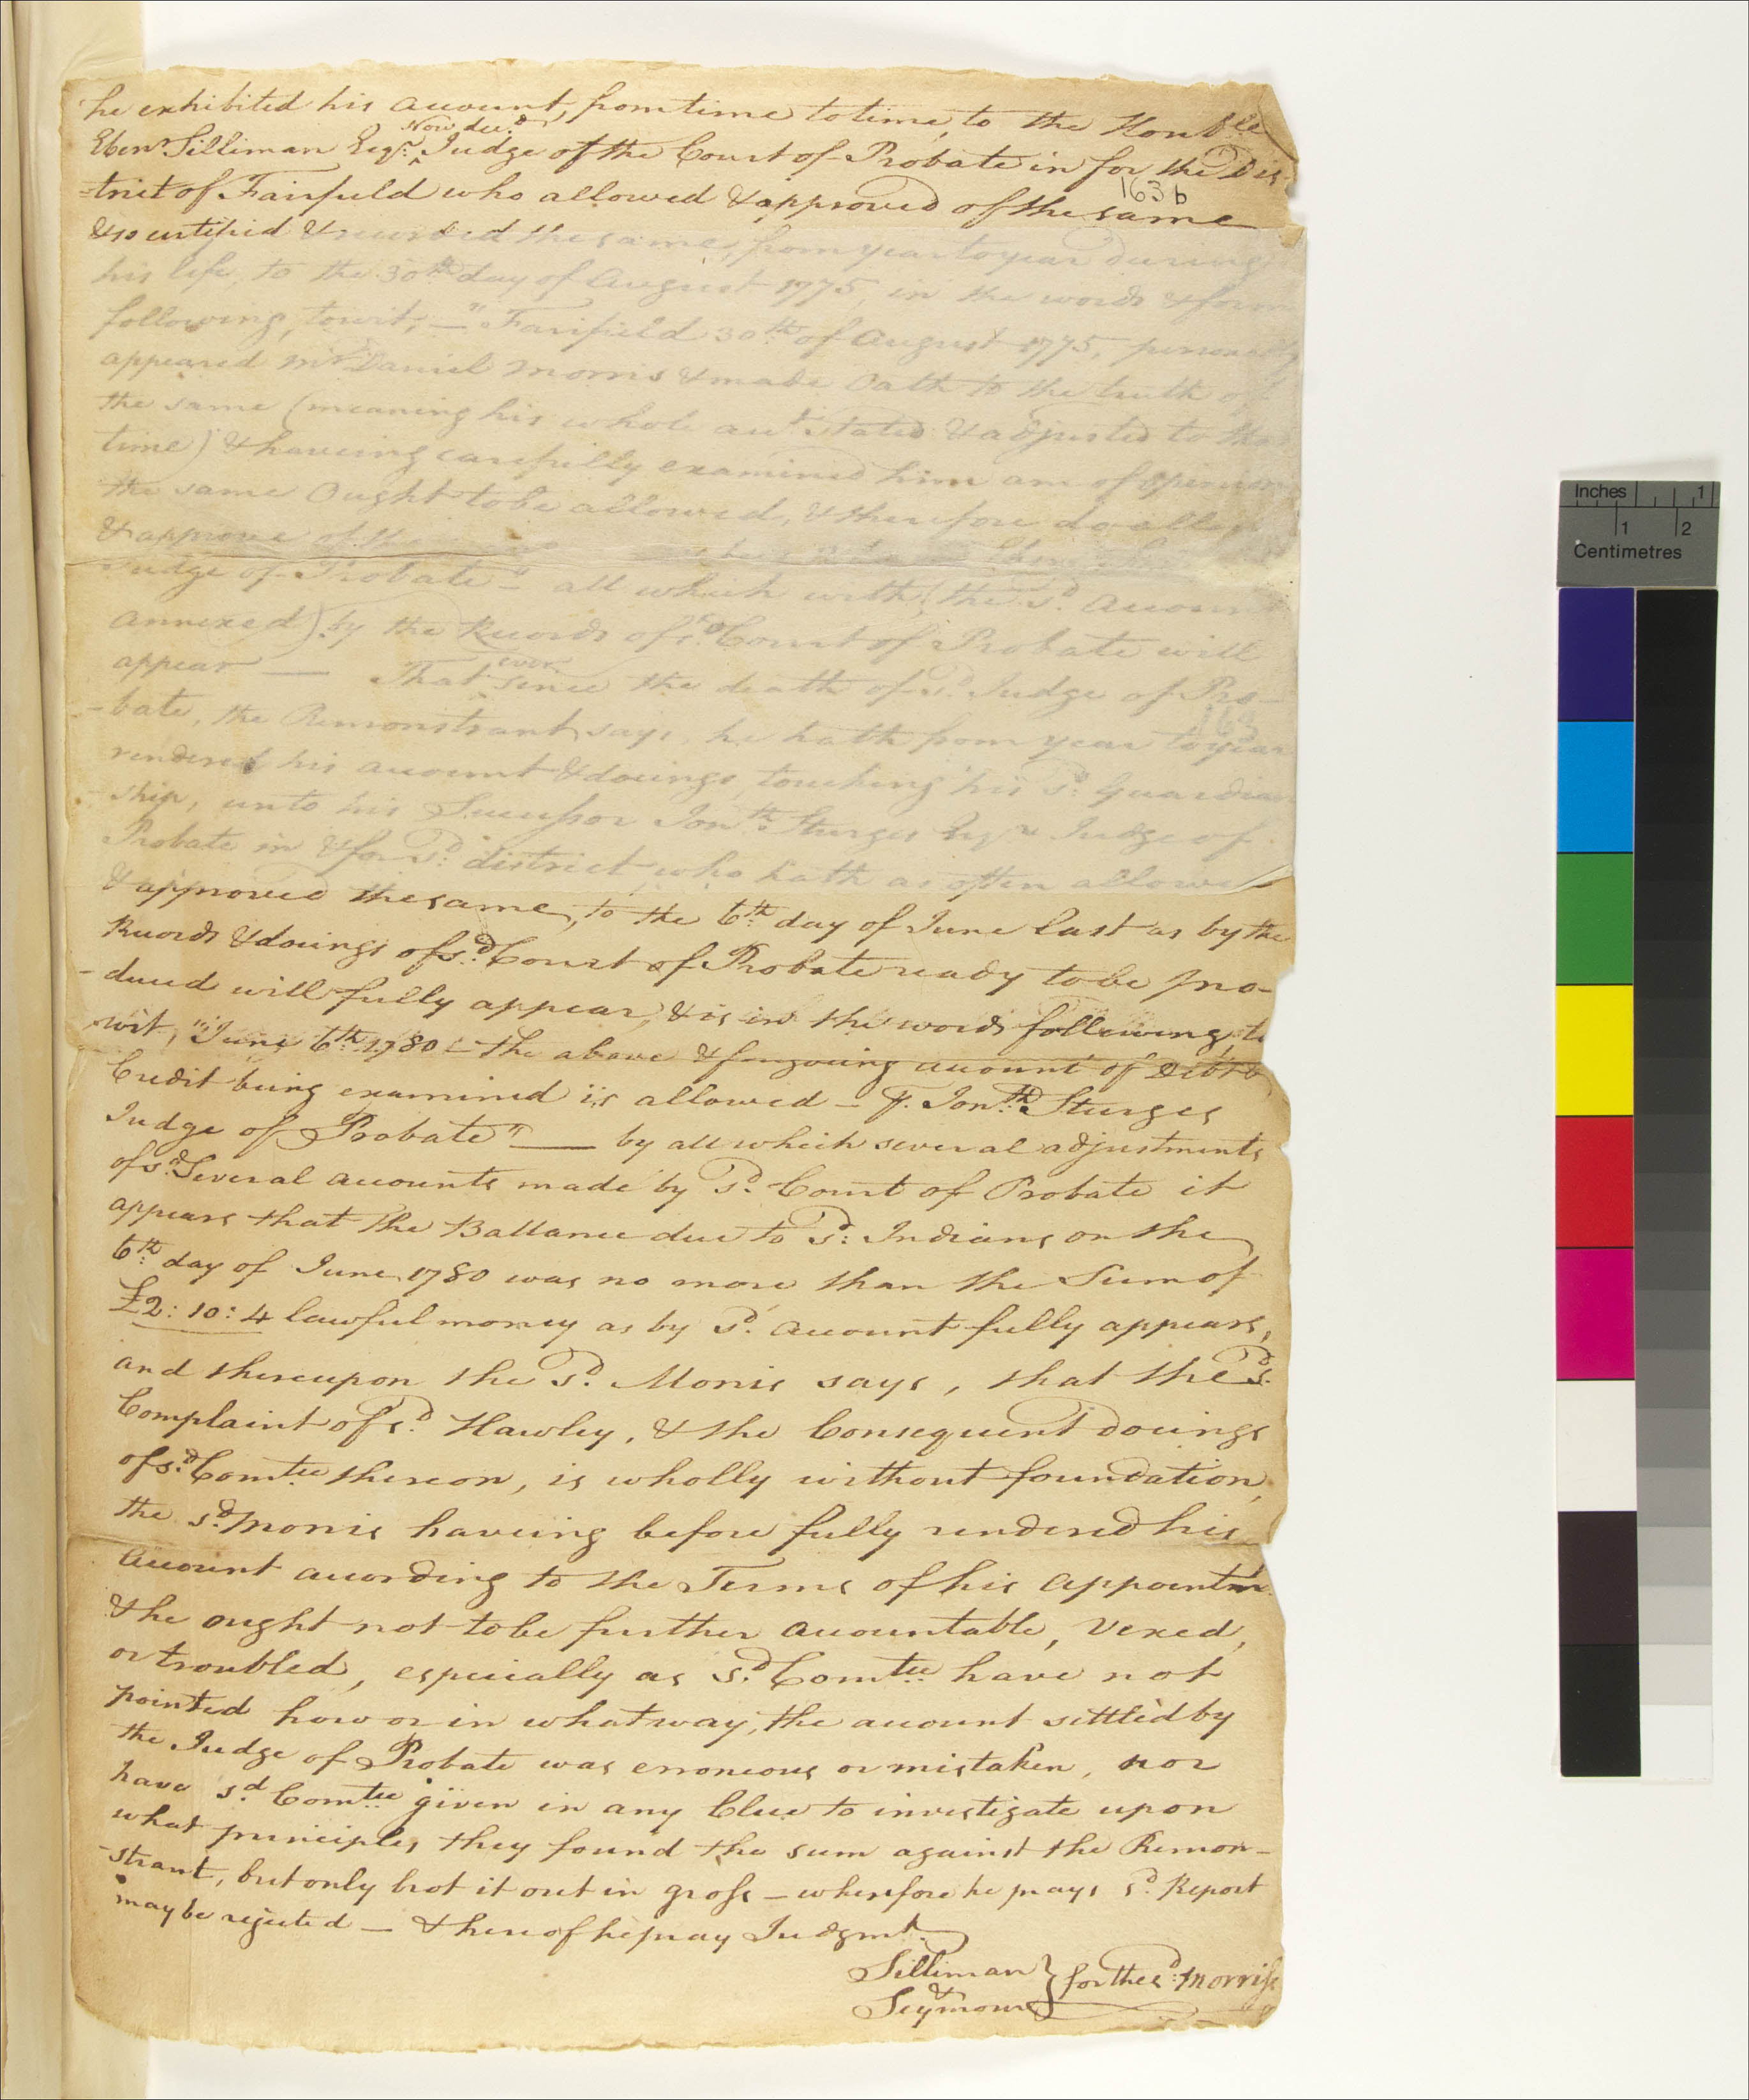 he exhibited his account, from time to time, to the Honble
Now decd
Ebenr Silliman Esqr Judge of the Court of Probate in for the Dis
163 b
-trict of Fairfield who allowed & approved of the same
& so certified & recorded the same, from year to year during
his life, to the 30th day of August 1775, in the words & form
following, towit, — "Fairfield 30th of August 1775, personally
appeared Mr Daniel Morris & made Oath to the truth of
the same (meaning his whole acct stated & adjusted to that
time) & haveing carefully examined him am of opinion
the same Ought to be allowed, & therefore do allow
& approve of the
Judge of Probate" – all which with (the sd. account
annexed) by the Records of sd Court of Probate will
appear — That ever since the death of sd Judge of Pro-
163
-bate, the Remonstrant says, he hath from year to year
rendered his account & doings, touching his sd. Guardian
-ship, unto his Successor Jonth. Sturges Esqr Judge of
Probate in & for sd. district, who hath as often allowed
& approved the same, to the 6th day of June last as by the
Records & doings of sd. Court of Probate ready to be pro-
-duced will fully appear, & is in the words following, to
wit, "June 6th 1780 – the above & foregoing account of Debt &
Credit being examined is allowed – Jonth. Sturges
Judge of Probate" — by all which several adjustments
of sd. Several accounts made by sd. Court of Probate it
appears that the Ballance due to sd: Indians on the
6th: day of June 1780 was no more than the Sum of
£2: 10: 4 lawful money as by sd. account fully appears,
and thereupon the sd. Morris says, that the sd.
Complaint of sd. Hawley, & the Consequent doings
of sd. Comtee thereon, is wholly without foundation,
the sd. Morris haveing before fully rendered his
account according to the Terms of his appointmt
& he ought not to be further accountable, Vexed,
or troubled, especially as sd. Comtee have not
pointed how or in what way, the account settled by
the Judge of Probate was erroneous or mistaken, nor
have sd. Comtee given in any Clue to investigate upon
what principles they found the sum against the Remon-
-strant, but only brot it out in gross – wherefore he prays sd. Report
may be rejected — & hereof he pray Judgmt.
Silliman } for the sd. Morriss
&
Seymour
Inches 1
1 2
Centimetres